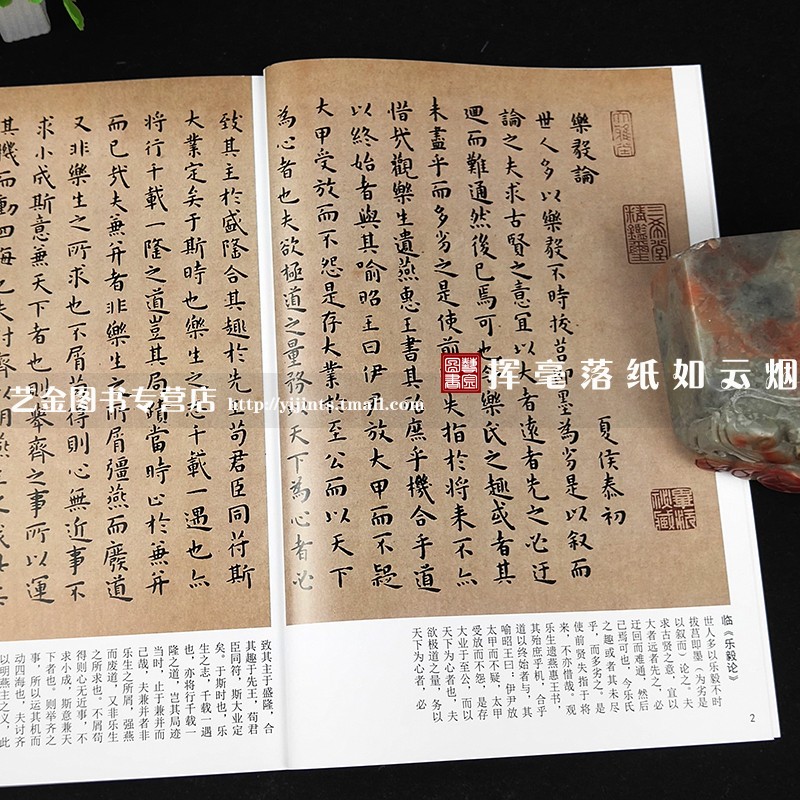 樂毅論
夏侯泰初
世人多以樂毅不時拔莒即墨為劣是以叙而
論之夫求古賢之意宜以大者遠者先之必迂
迴而難通然後已焉可也今樂氏之趣或者其
未盡乎而多劣之是使前失指於將来不亦
惜哉觀樂生遺燕惠王書其殆庶乎機合乎道
以終始者與其喻昭王曰伊尹放大甲而不疑
大甲受放而不怨是存大業於至公而以天下
為心者也夫欲極道之量務以天下為心者必
致其主於盛隆合其趣於先苟君臣同符斯
大業定矣于斯時也樂生之志千載一遇也亦
將行千載一隆之道豈其局當時止於兼并
而已哉夫兼并者非樂生之所屑彊燕而廢道
又非樂生之所求也不屑苟得則心無近事不
求小成斯意兼天下者也則舉齊之事所以運
其機而動四海也夫討齊以明燕主之義此其
三希堂精鑒璽
挥毫落纸如云烟
艺金图书专营店 http://yijints.tmall.com
临《乐毅论》
世人多以乐毅不时
拔莒即墨（为劣是
以叙而）论之。夫
求古贤之意，宜以
大者远者先之，必
迂回而难通，然后
已焉可也，今乐氏
之趣或者其未尽
乎，而多劣之。是
使前贤失指于将
来，不亦惜哉。观
乐生遗燕惠王书，
其殆庶乎机，合乎
道以终始者，与其
喻昭王曰：伊尹放
太甲而不疑，太甲
受放而不怨，是存
大业于至公，而以
天下为心者也，夫
欲极道之量，务以
天下为心者，必
2
致其主于盛隆，合
其趣于先王，苟君
臣同符，斯大业定
矣。于斯时也，乐
生之志，千载一遇
也，亦将行千载一
隆之道，岂其局迹
当时，止于兼并而
己哉，夫兼并者非
乐生之所屑，强燕
而废道，又非乐生
之所求也。不屑苟
得则心无近事，不
求小成，斯意兼天
下者也。则举齐之
事，所以运其机而
动四海也。夫讨齐
以明燕主之义，此